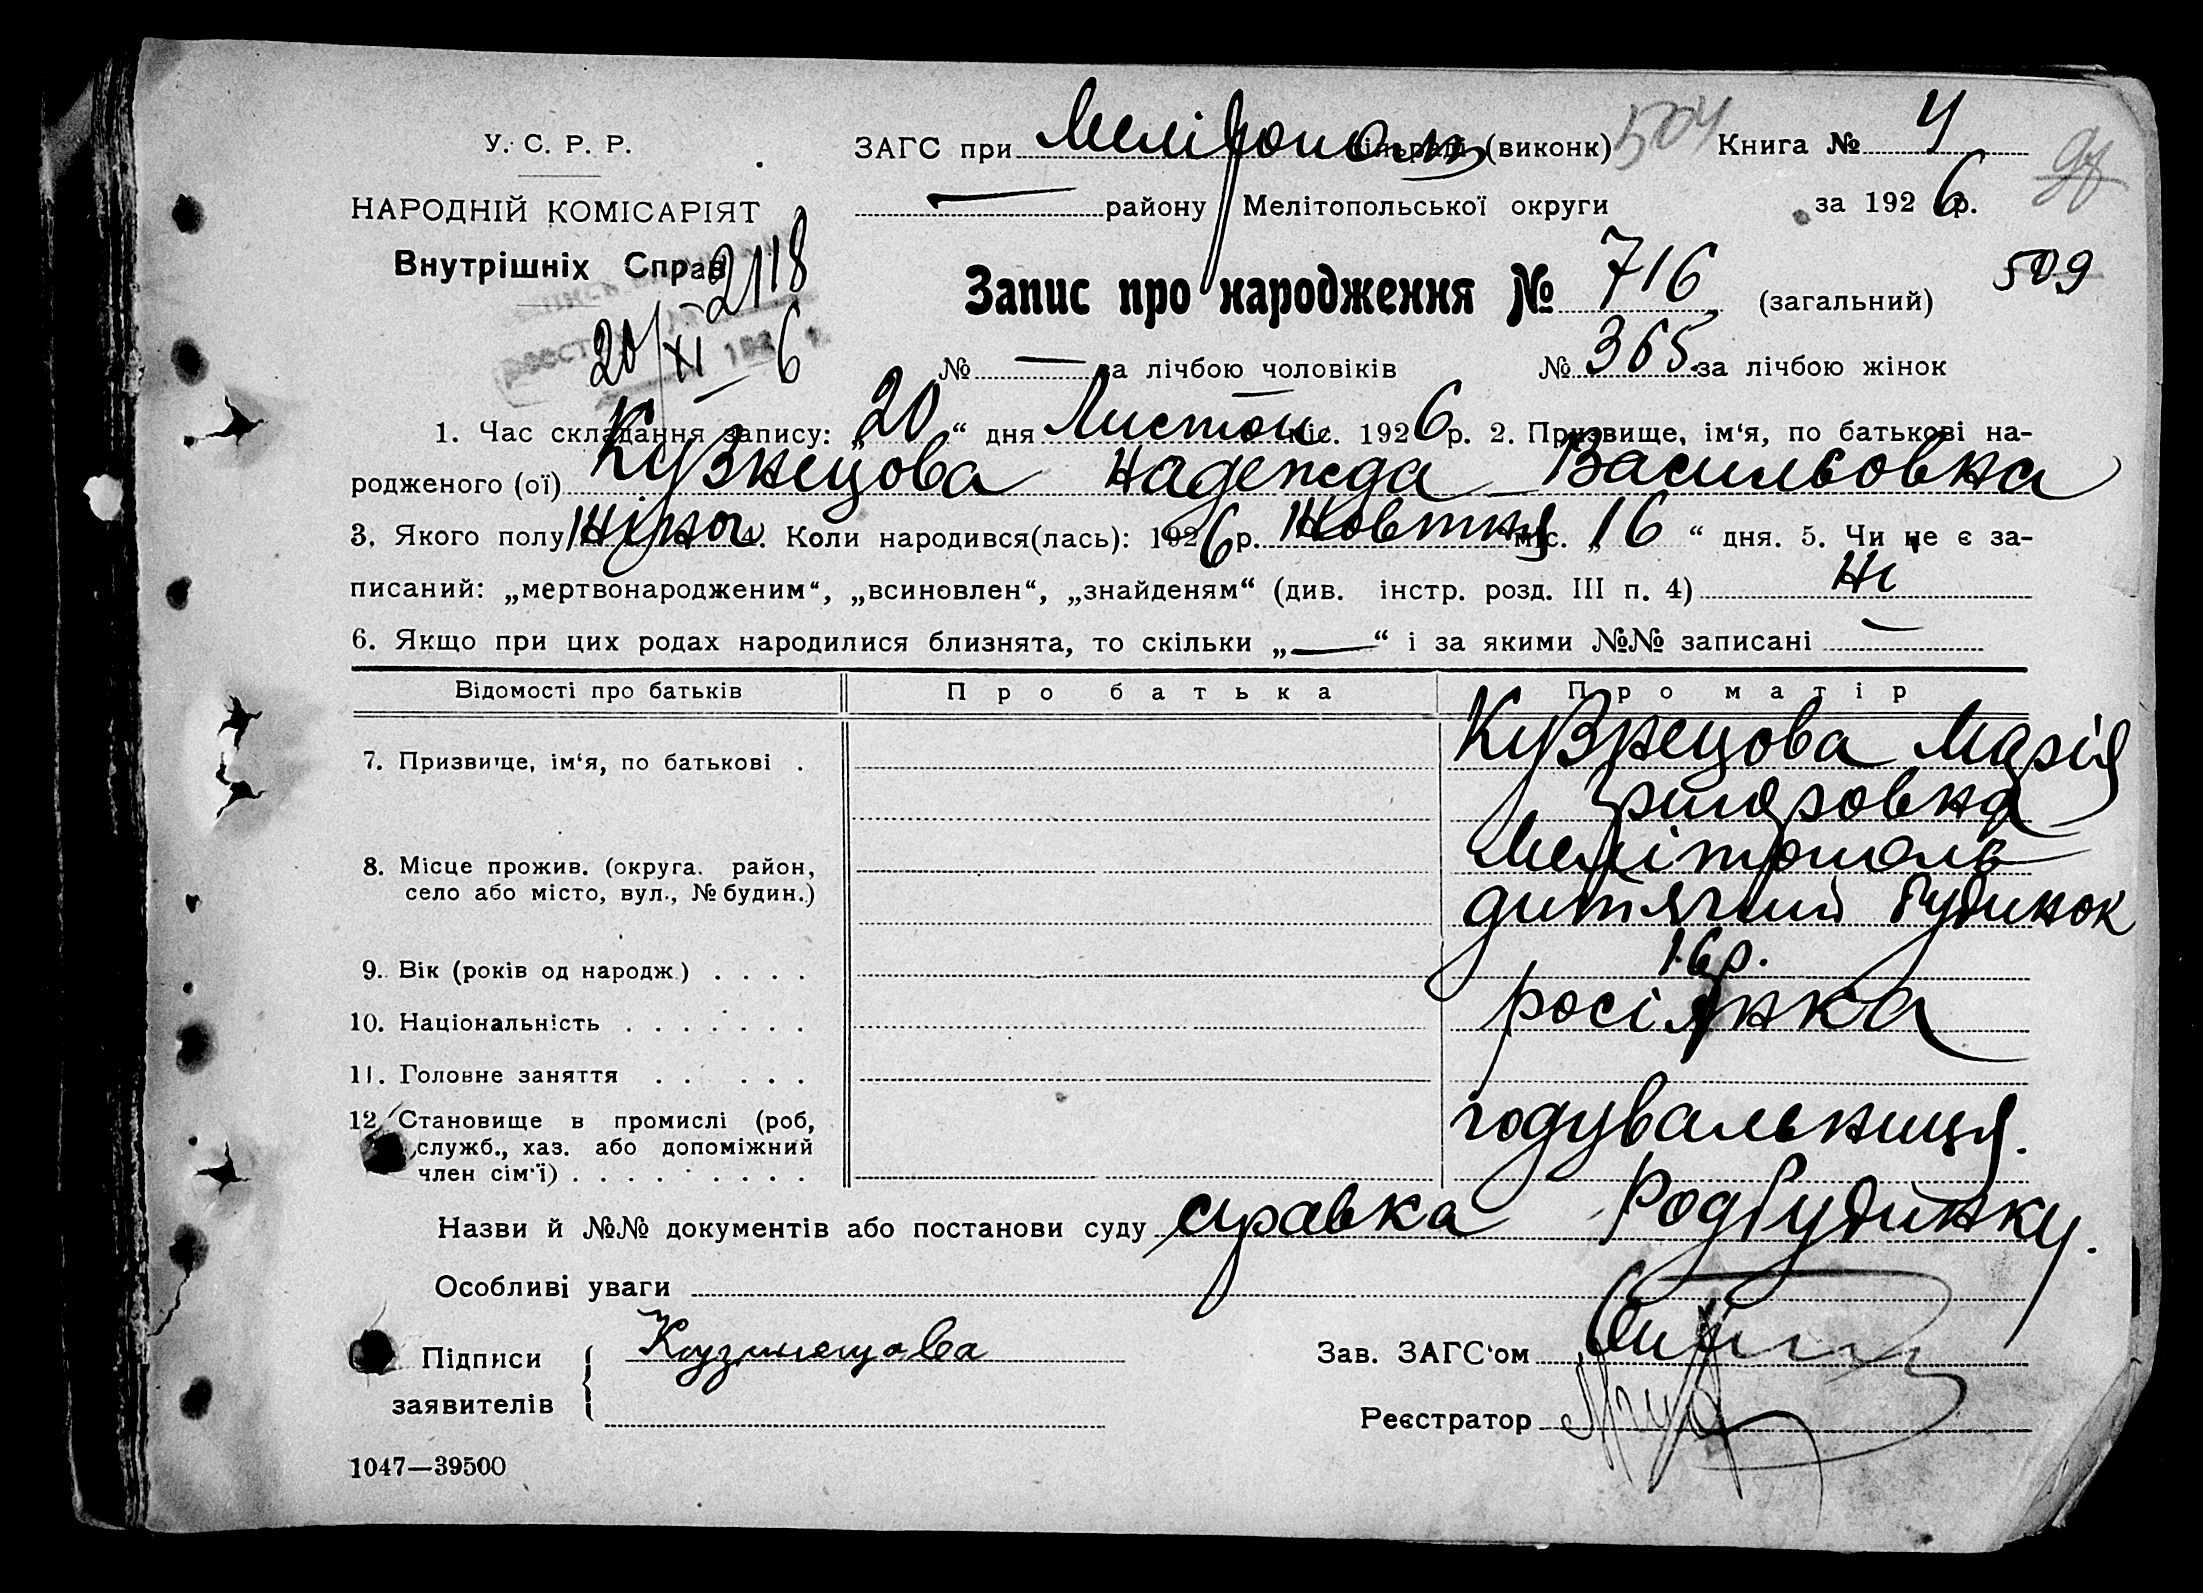 У. С. Р. Р.
НАРОДНІЙ КОМІСАРІЯТ
Внутрішніх Справ
2118
20/XI 6
ЗАГС при Мелітополь (виконк) 504 Книга № 4
— району Мелітопольської округи за 1926 р.
Запис про народження № 716 (загальний) 509
№ — за лічбою чоловіків № 365 за лічбою жінок
1. Час складання запису: „20“ дня Листоп міс. 1926 р. 2. Призвище, ім‘я, по батькові на-
родженого (ої) Кузнецова Надежда Васильовна
3. Якого полу жіноч 4. Коли народився(лась): 1926 р. Жовтня міс. „16“ дня. 5. Чи не є за-
писаний: „мертвонародженим“, „всиновлен“, „знайденям“ (див. інстр. розд. III п. 4) Ні
6. Якщо при цих родах народилися близнята, то скільки „—“ і за якими №№ записані —
Відомості про батьків Про батька Про матір
7. Призвище, ім‘я, по батькові . Кузнецова Марія
8. Місце прожив. (округа. район, Мелітополь
село або місто, вул., № будин.) дитячий будинок
9. Вік (років од народж.) . . . . 16 р.
10. Національність . . . . . . . росіянка
11. Головне заняття . . . . .
12. Становище в промислі (роб, годувальниця.
служб., хаз. або допоміжний
член сім‘ї) . . . . . . . .
Назви й №№ документів або постанови суду справка Родбудинку.
Особливі уваги
Підписи Кузнецова Зав. ЗАГС‘ом
заявителів Реєстратор
1047—39500